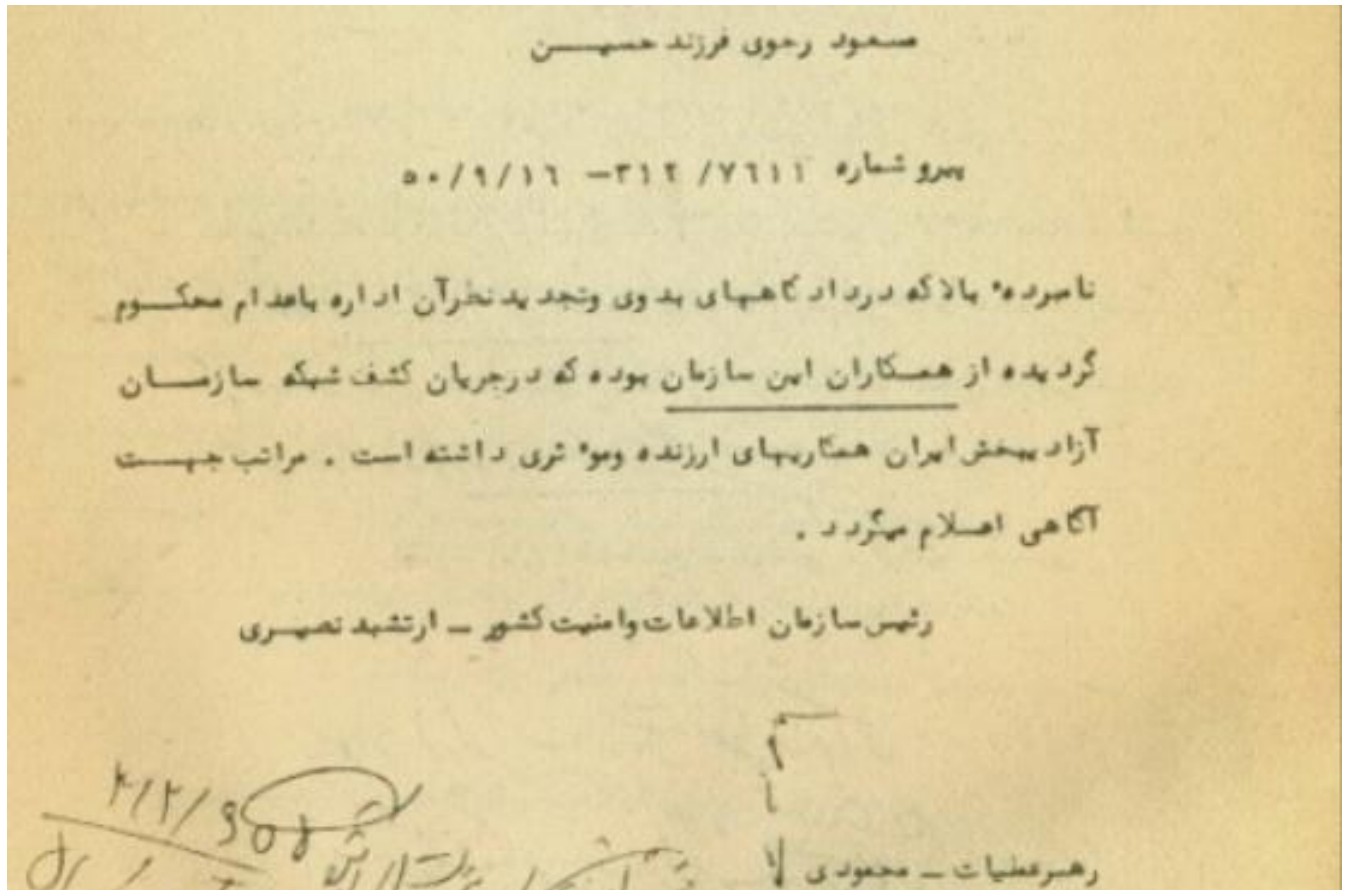 مسعود رجوی فرزند حسیـــن
پیرو شماره ۷۶۱۱ /۳۱۲– ۵۰/۹/۱۶
نامبرده بالا که در دادگاههای بدوی وتجدیدنظرآن اداره باعدام محکـوم
گردیده از همـکاران این سازمان بوده که درجریان کشف شبکه سازمــان
آزادیبخش ایران همکاریهای ارزنده ومو٬ثری داشته است . مراتب جهـــت
آگاهی اعــلام میگردد .
رئیس سازمان اطلاعات وامنیت کشور – ارتشبد نصیــری
رهبرعملیات – محمودی